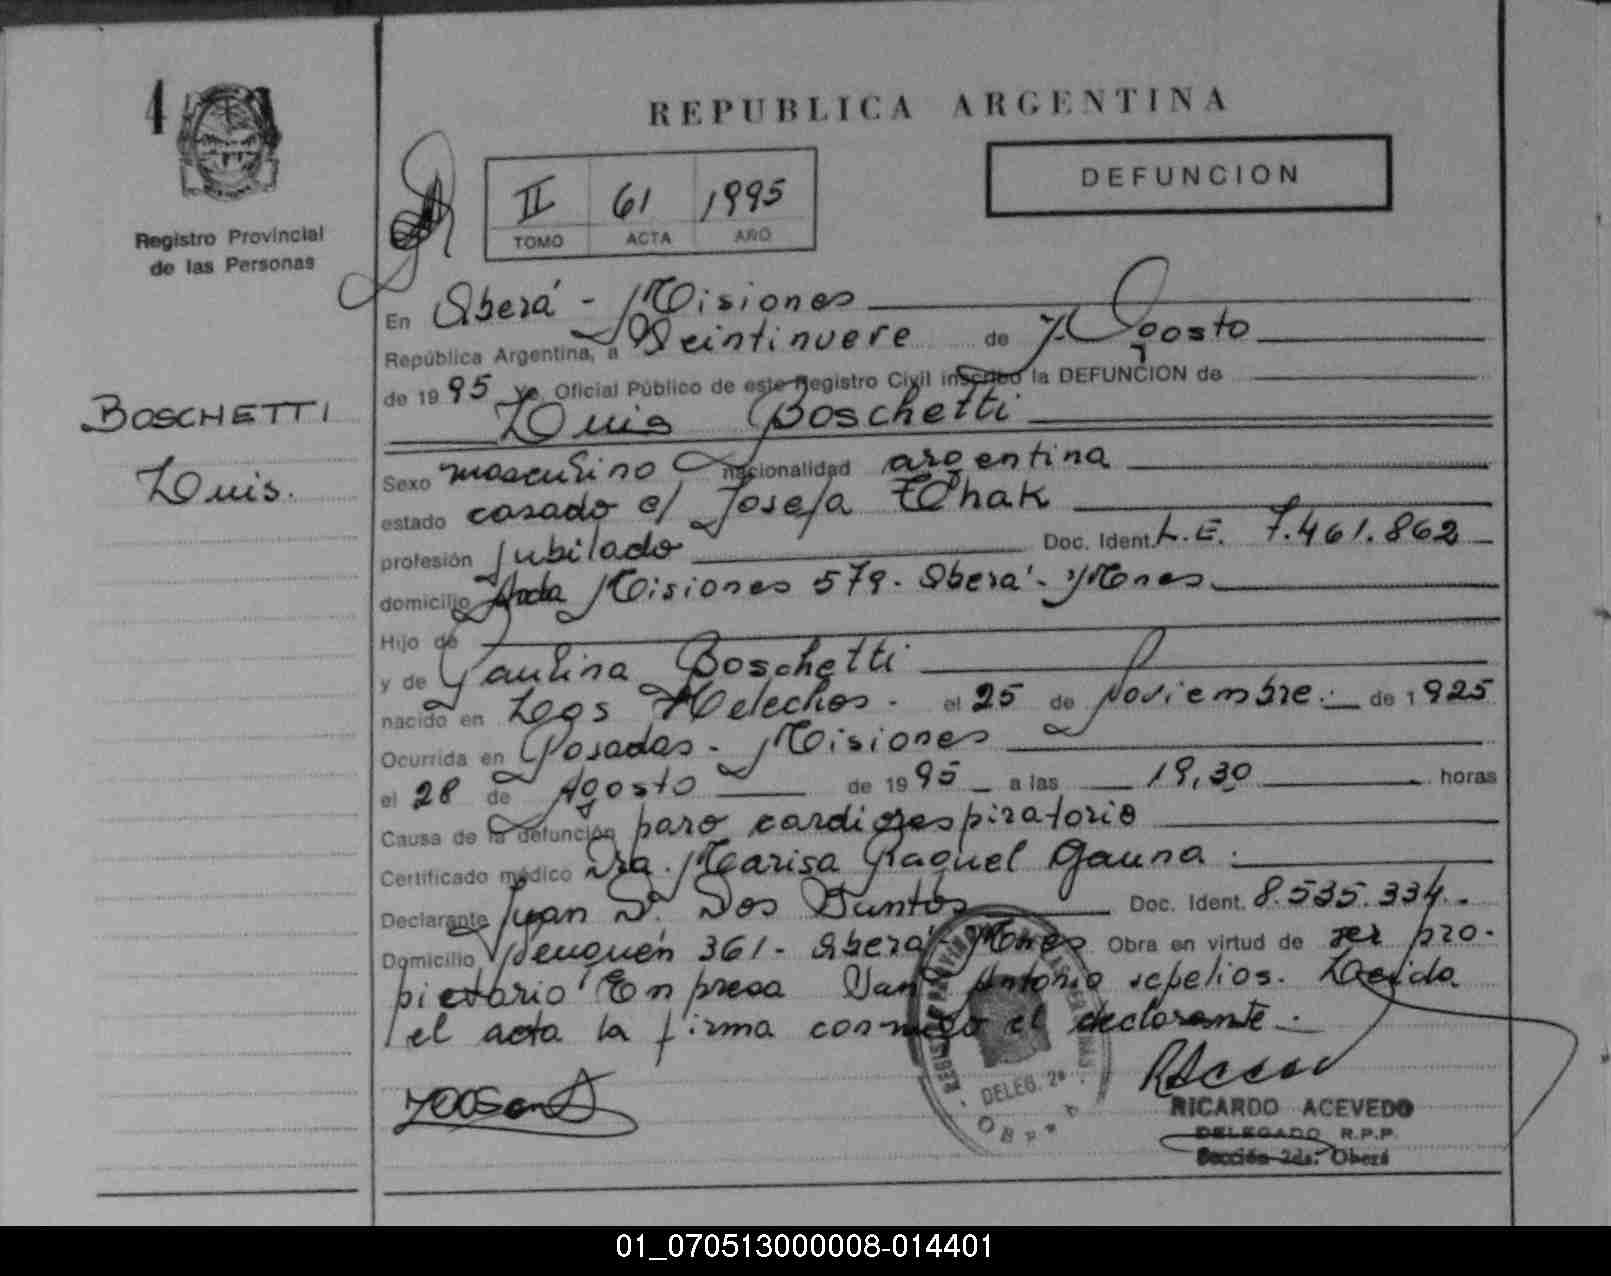 4
REPUBLICA ARGENTINA
DEFUNCION
II 61 1995
TOMO ACTA AÑO
Registro Provincial
de las Personas
BOSCHETTI
Luis.
En Oberá - Misiones
República Argentina, a Veintinueve de Agosto
de 19 95 yo, Oficial Público de este Registro Civil inscribo la DEFUNCION de
Luis Boschetti
Sexo masculino nacionalidad argentina
estado casado c/ Josefa
profesión Jubilado Doc. Ident. L.E. 7.461.862
domicilio Avda Misiones 579. Oberá - Mnes
Hijo de
y de Paulina Boschetti
nacido en Los Helechos. el 25 de Noviembre. de 1 925
Ocurrida en Posadas - Misiones
el 28 de Agosto de 19 95 a las 19,30 horas
Causa de la defunción paro cardiorespiratorio
Certificado médico Dra. Marisa Raquel Gauna.
Declarante Juan D. Dos Santos Doc. Ident. 8.535.334.
Domicilio Neuquén 361 - Oberá - Mnes Obra en virtud de ser pro-
pietario Empresa San Antonio sepelios. Leida
el acta la firma conmigo el declarante.
DELEG. 2ª
RICARDO ACEVEDO
DELEGADO R.P.P.
Sección 2da. Oberá
01_070513000008-014401